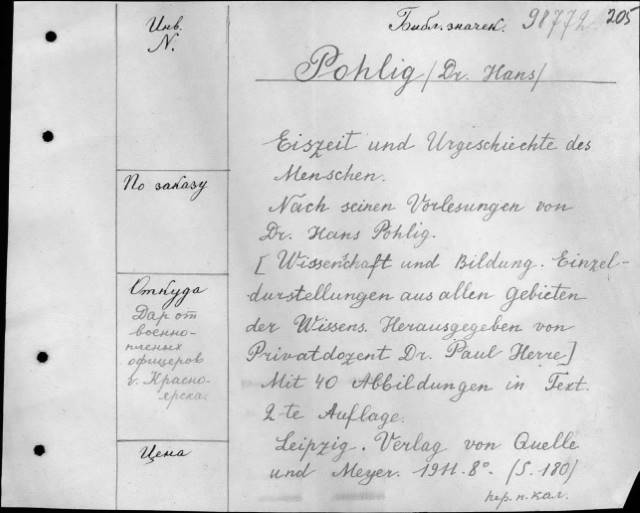 Инв.
N.
Библ. значек. 98772 205
Pohlig /Dr. Hans/
Eiszeit und Urgeschichte des
Menschen.
Nach seinen Vorlesungen von
Dr. Hans Pohlig.
[Wissenschaft und Bildung. Einzel-
durstellungen aus allen Gebieten
der Wissens. Herausgegeben von
Privatdozent Dr. Paul Herre]
Mit 40 Abbildungen in Text.
2-te Auflage.
Leipzig. Verlag von Quelle
und Meyer. 1911. 8°. (S. 180)
пер. н. кал.
По заказу
Откуда
Дар от
военно-
пленых
офицеров
г. Красно-
ярска.
Цена